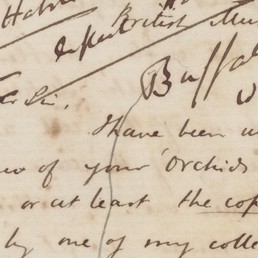 British Mu
Buffal
Sir.
I have been u
of your 'Orchids
or at least the cop
by one of my colle